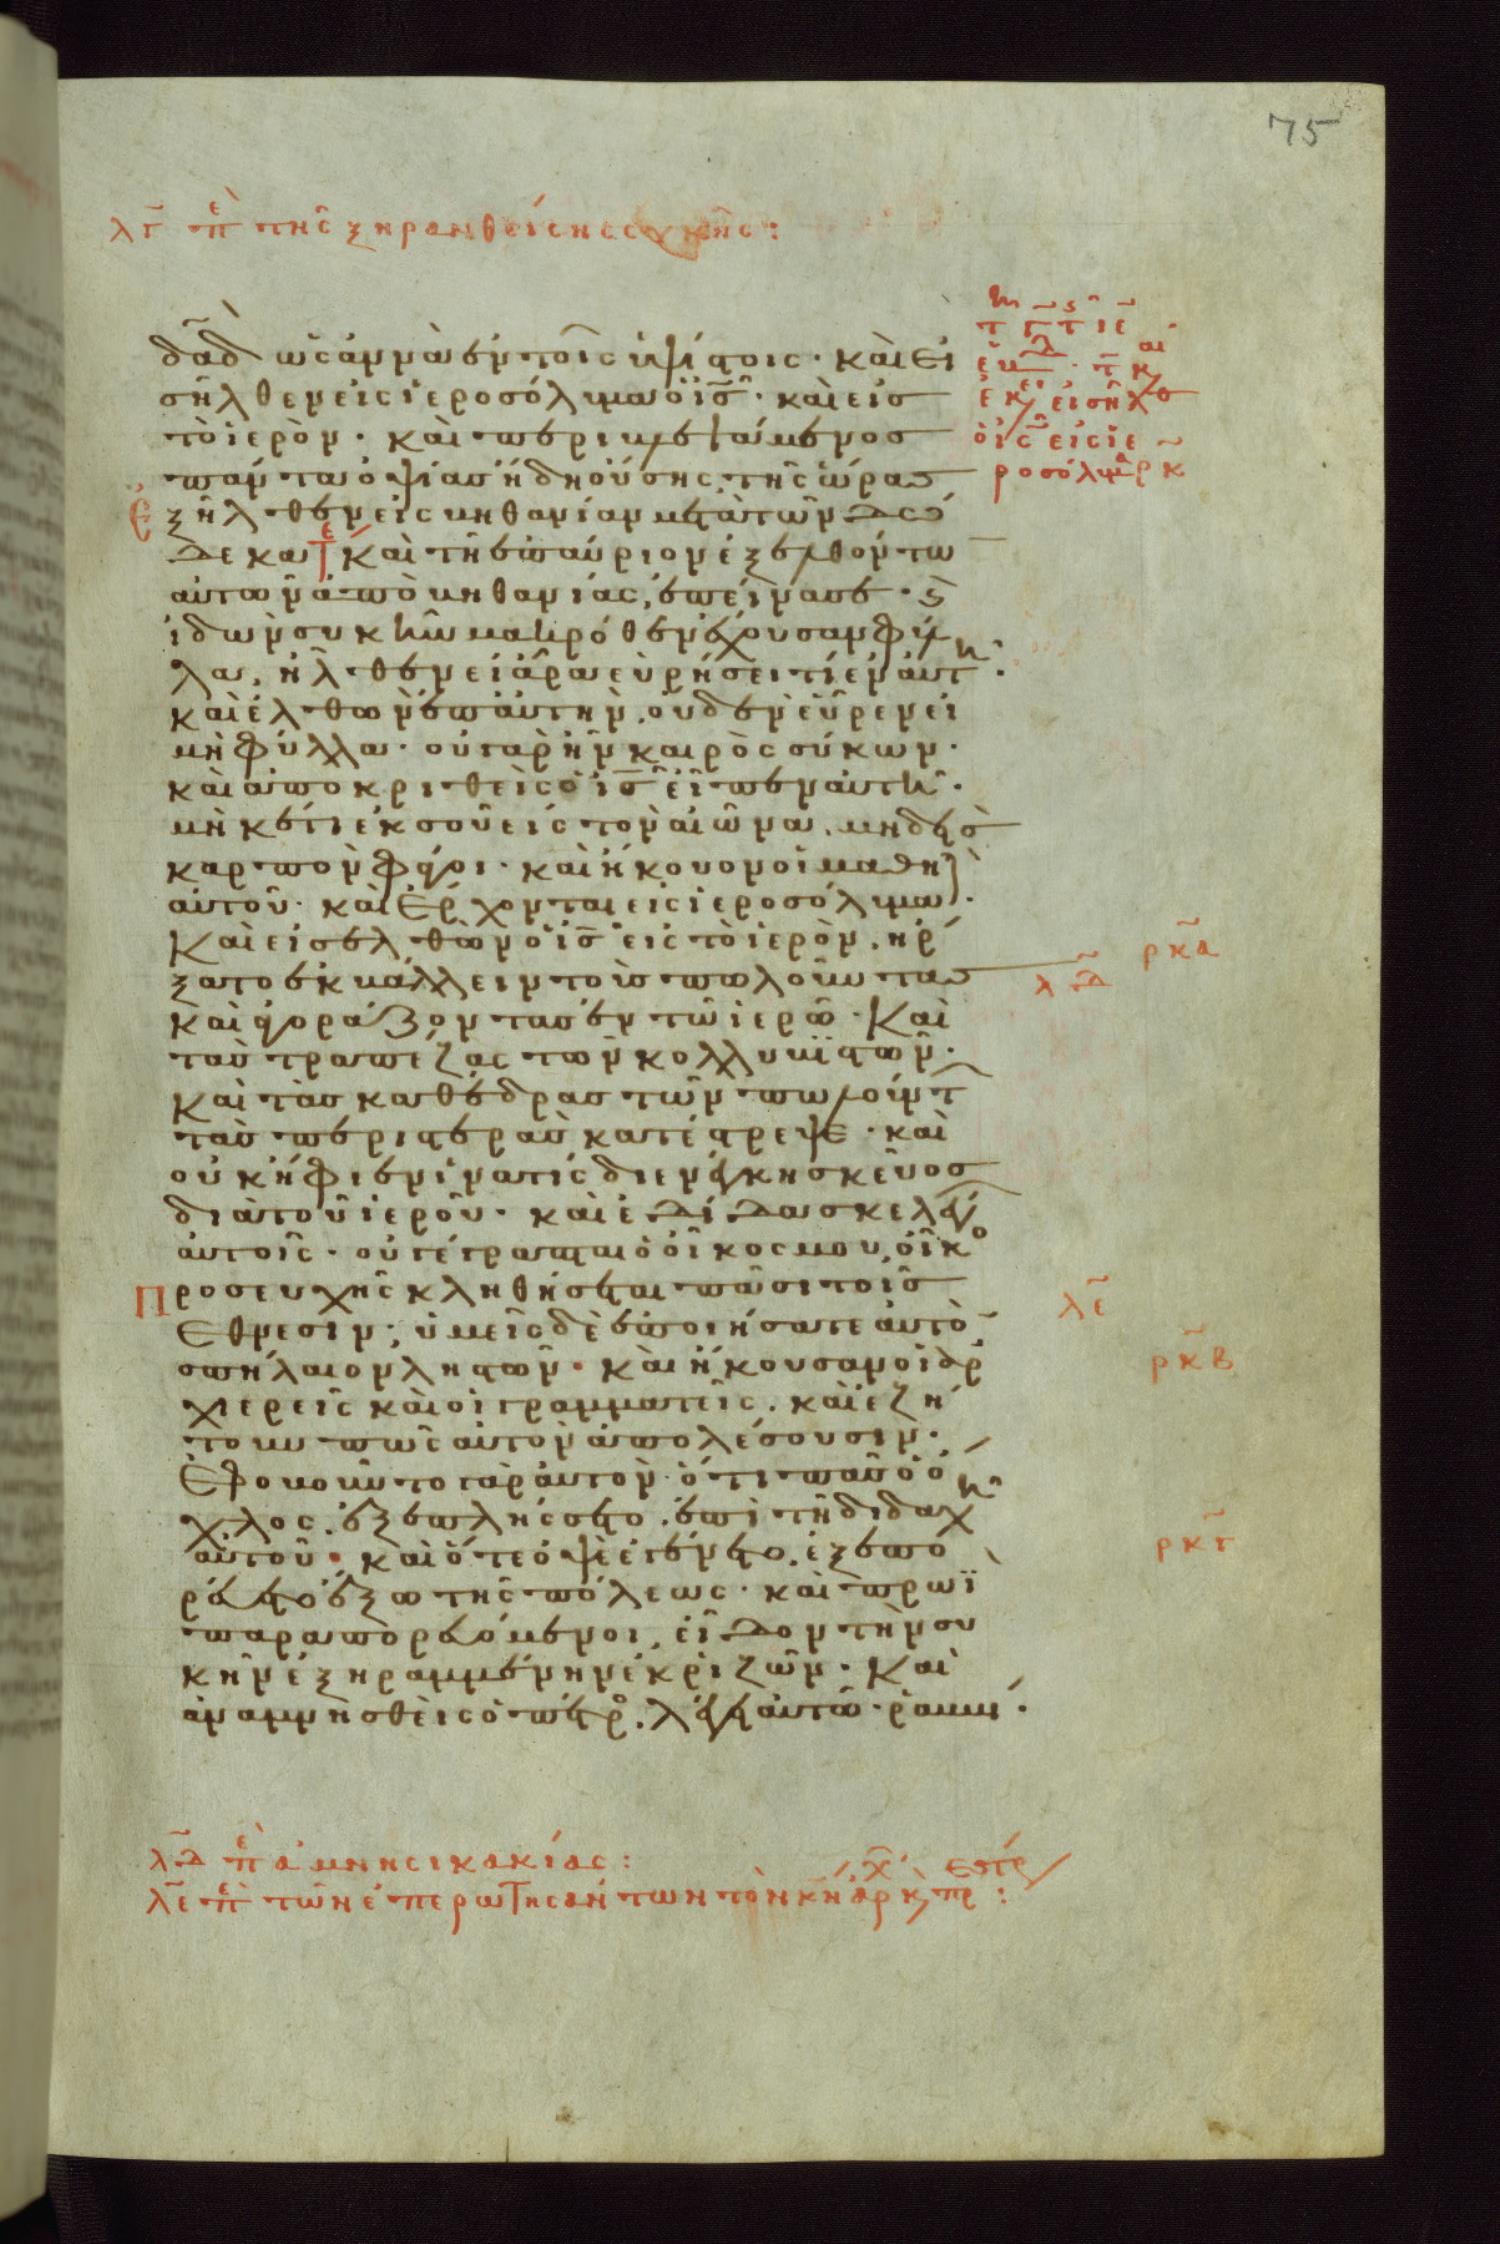 75
λγ̄ πε τῆς ξηρανθείσης συκῆς:
δᾱδ ὡσαννὰ ἐν τοῖς ὑψίστοις· καὶ εἰ
σῆλθεν εἰς ἱεροσόλυμα ὁ ῑς̄· καὶ εἰσ
τὸ ἱερὸν· καὶ περιβλεψάμενοσ
πάντα ὀψίασ ἤδη οὔσης τῆς ὥρασ
ἐξῆλθεν εἰς βηθανίαν μετὰ τῶν δώ
δεκα τε Καὶ τῆ ἐπαύριον ἐξελθόντω
αὐτῶν ἀπὸ βηθανίας, ἐπείνασε· ϛ̀
ἰδὼν συκῆν μακρόθεν ἔχουσαν φύλ
λα, ἦλθεν εἰ ἄρα εὑρήσει τί ἐν αὐτῆ·
καὶ ἐλθὼν ἐπ αὐτὴν, οὐδὲν εὗρεν εἰ
μὴ φύλλα· οὐ γὰρ ἦν καιρὸς σύκων·
καὶ ἀποκριθεὶς ὁ ῑς̄ εἶπεν αὐτῆ·
μὴ κέτι ἐκ σοῦ εἰς τὸν αἰῶνα, μηδεὶσ
καρπὸν φάγοι· καὶ ἤκουον οἱ μαθητ
αὐτοῦ· καὶ Ἔρχονται εἰς ἱεροσόλυμα·
Καὶ εἰσελθὼν ὁ ῑς̄ εἰς τὸ ἱερὸν, ἤρ
ξατο ἐκβάλλειν τοὺσ πωλοῦντασ
καὶ ἀγοράζοντασ ἐν τῶ ἱερῶ· Καὶ
τὰσ τραπέζας τῶν κολλυβιστῶν·
καὶ τὰσ καθέδρασ τῶν πωλούντ
τὰσ περιστερὰσ κατέστρεψε· καὶ
οὐκ ἤφιεν ἵνα τίς διενέγκη σκεῦοσ
διὰ τοῦ ἱεροῦ· καὶ ἐδίδασκε λέγ
αὐτοῖς· οὐ γέγραπται ὁ οἶκος μου, οἶκο
Προσευχῆς κληθήσεται πᾶσι τοῖσ
Ἔθνεσιν; ὑμεῖς δὲ ἐποιήσατε αὐτὸ
σπήλαιον ληστῶν· καὶ ἤκουσαν οἱ ἀρ
χιερεῖς καὶ οἱ γραμματεῖς, καὶ ἐζή
τουν πῶς αὐτὸν ἀπολέσουσιν·
Ἐφοβοῦντο γὰρ αὐτὸν· ὅτι πᾶσ ὁ ὄ
χλος, ἐξεπλήσσετο, ἐπὶ τῆ διδαχῆ
αὐτοῦ· καὶ ὅτε ὀψὲ ἐγένετο, ἐξεπο
ρεύετο ἔξω τῆς πόλεως· καὶ πρωῒ
παραπορευόμενοι, εἶδον τὴν συ
κῆν ἐξηραμμένην ἐκ ῥιζῶν· Καὶ
ἀναμνησθεὶς ὁ πέτρο, λέγει αὐτῶ· ῥαββί·
εἰσῆλθ
ὁ ῑς̄ εἰς ἱε
ροσόλυμα ρκ̄
ρκ̄α
λ̄δ
λ̄ε
ρκ̄β
ρκ̄γ
λ̄δ πε ἀμνησικακίας:
λ̄ε πε τῶν ἐπερωτησάντων τὸν κ̄ν